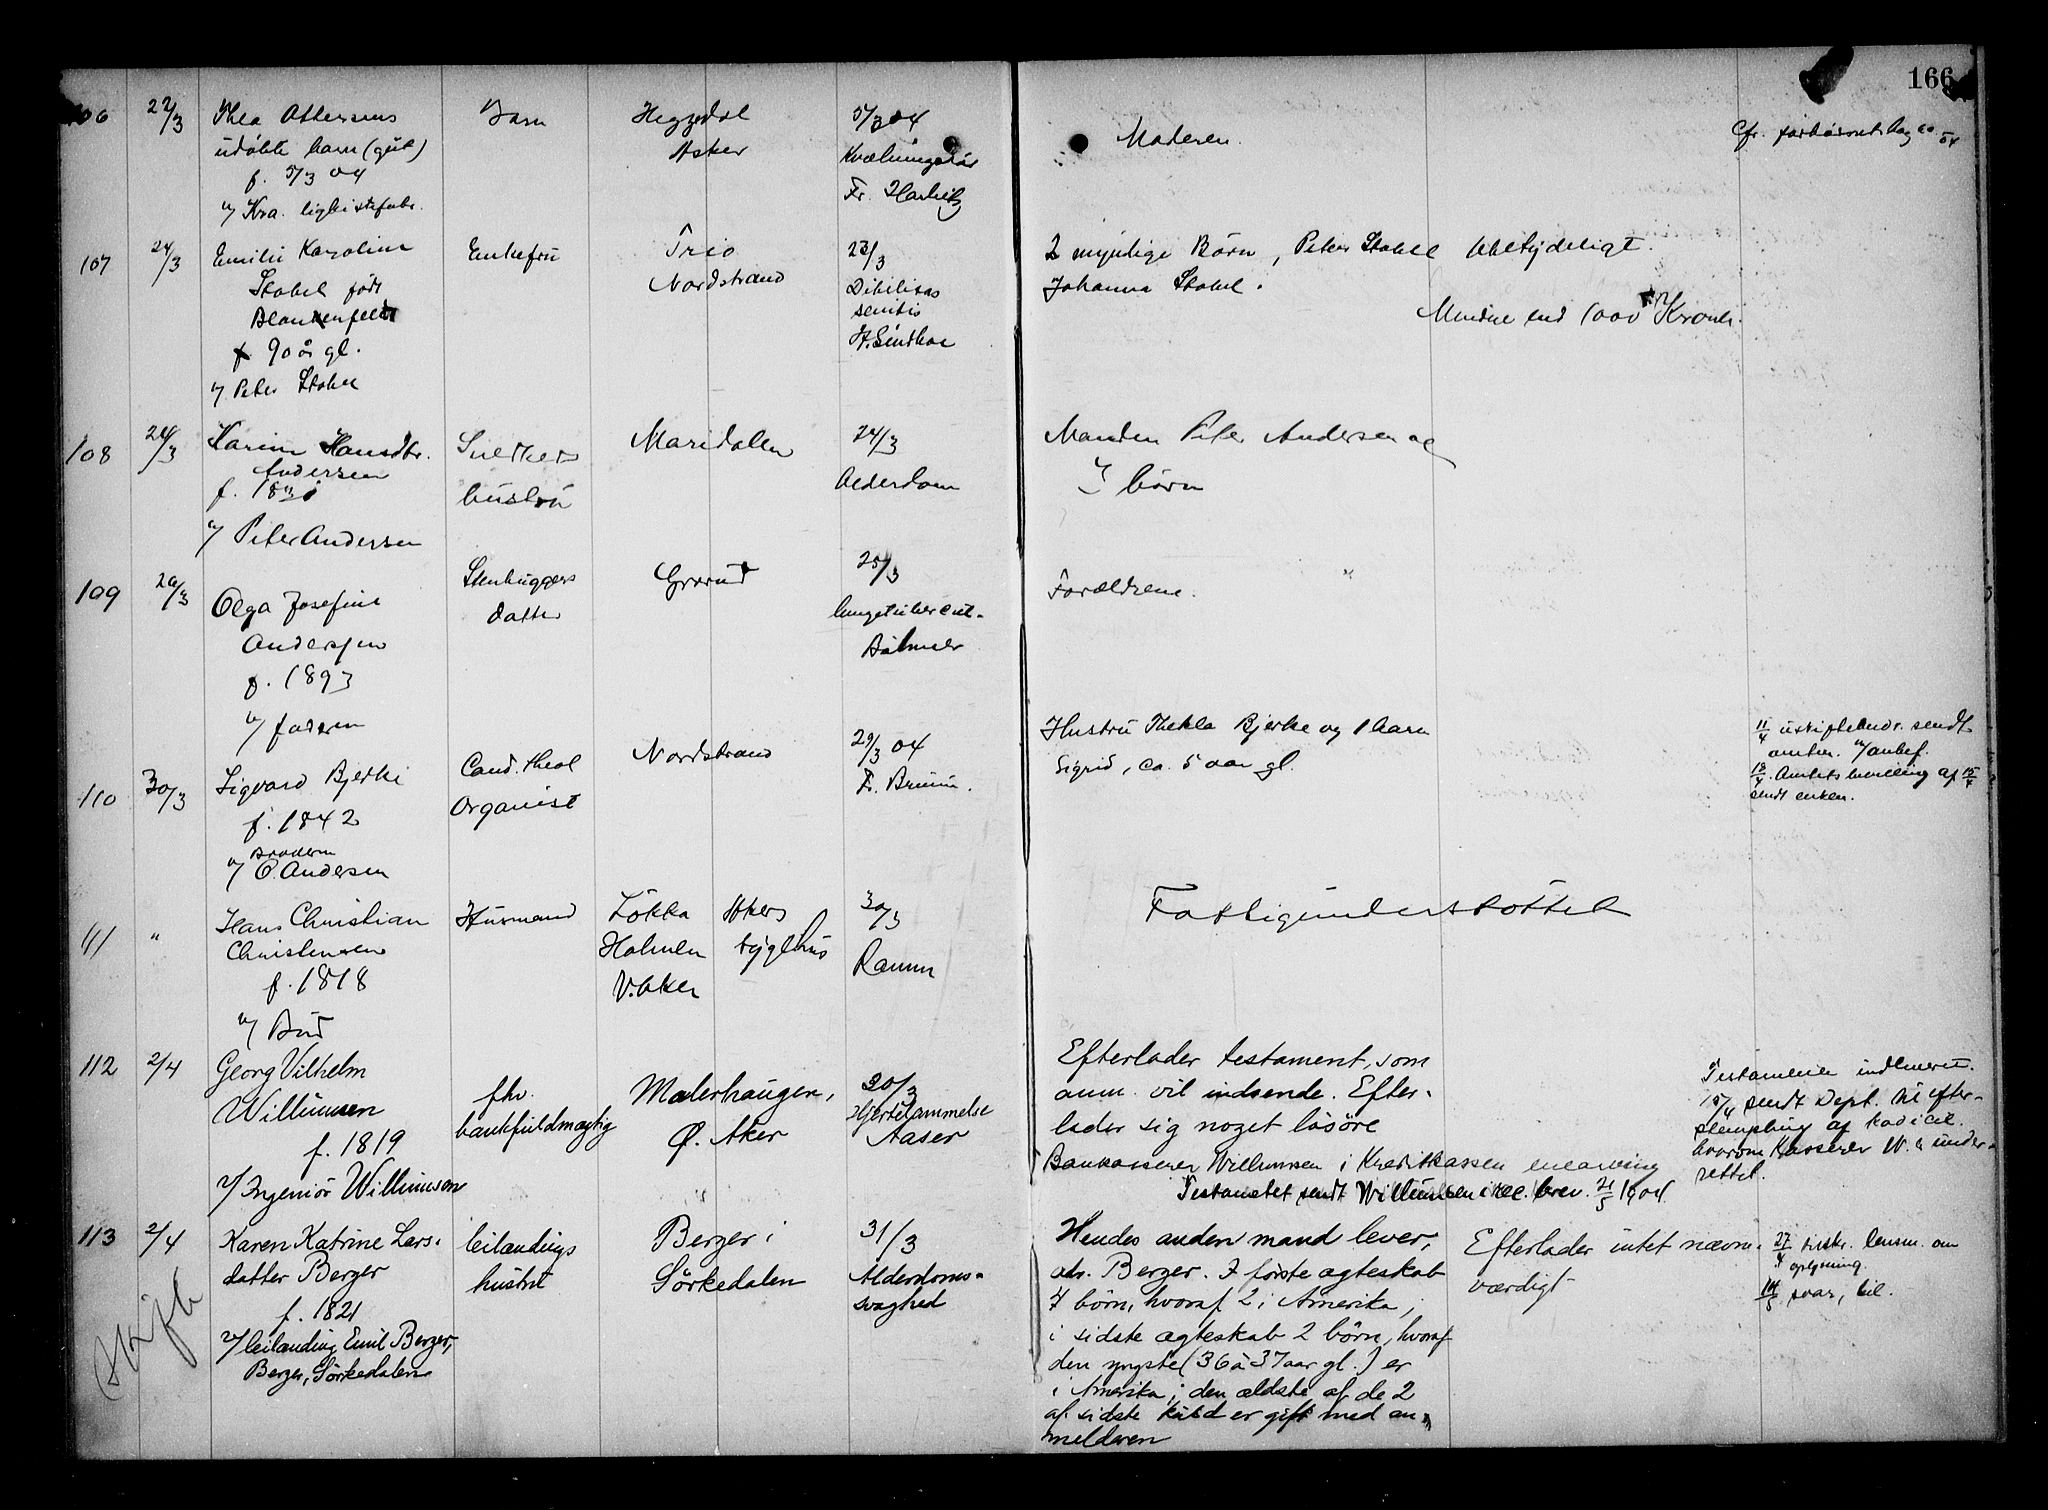 166
106 22/3 Thea Ottersens Barn Heggedal 5/3 04 Moderen.
udöbte barn (gut) Asker Kvælningsdöd
f. 5/3 04 Fr. Harbitz
v/ Kra. ligkistefabr.
107 24/3 Emilie Karoline Enkefru Trio 23/3 2 myndige Börn, Peter Stabel Ubetydeligt.
Stabel født Nordstrand Debilitas Johanna Stabel.
Blankenfeldt senilis Mindre end 1000 Kroner.
f. 90 år gl.
v/ Peter Stabel
108 26/3 Karine Hansdtr. Snekkers Maridalen 24/3 Manden Peter Andersen og
Andersen hustru Alderdom börn
f. 18
v/ Peter Andersen
109 26/3 Olga Josefine Stenhuggers Grorud 25/3 Forældrene. "
Andersen datter lungetubercul.
f. 1893
v/ faderen
110 30/3 Sigvard Bjerke Cand. theol Nordstrand 29/3 04 Hustru Thekla Bjerke og 1 barn
f. 1842 Organist Fr. Bruun. Sigrid, ca. 5 aar gl.
Broderen
v/ O. Andersen
11/4 uskifteandr. sendt
amtm. m/anbef.
18/4. Amtets bevilling af 15/4
sendt enken.
111 " Hans Christian Husmand Løkka Akers 30/3 Fattigunderstøttet
Christensen Holmen sygehus Ramm
f. 1818 V. Aker
v/ Bud
112 2/4 Georg Vilhelm fhv. Malerhaugen, 30/3 Efterlader testament, som
Willumsen bankfuldmægtig Ø. Aker Hjertelammelse anm. vil indsende. Efter-
f. 1819 Aaser lader sig noget løsøre
v/ Ingeniør Willumsen Bankasserer Willumsen i Kreditkassen enearving
Testametet sendt Willumsen i rec. brev. 21/5 1904
Testamente indleveret.
15/4 sendt Dept. til efter-
stempling af kodicil.
hvorom Kasserer W. er under-
rettet.
113 2/4 Karen Katrine Lars- leilændings Berger i 31/3 Hendes anden mand lever, Efterlader intet nævne-
datter Berger hustru Sörkedalen Alderdoms- adr. Berger. I förste ægteskab værdigt
f. 1821 svaghed 7 börn, hvoraf 2 i Amerika;
v/ leilænding Emil Berger, i sidste ægteskab 2 börn, hvoraf
Berger, Sörkedalen den yngste (36 à 37 aar gl.) er
i Amerika; den ældste af de 2
af sidste kuld er gift med an-
melderen
27/4 lensm. om
oplysning.
14/5. svar, bil.
Skifte